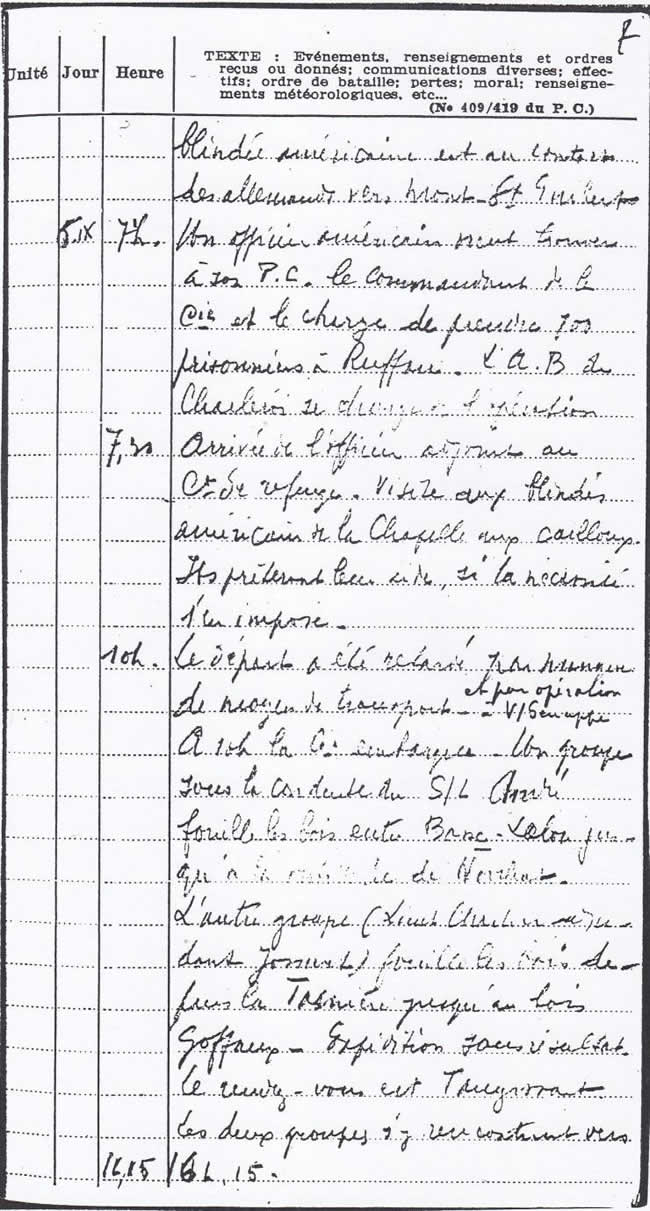 7
Unité Jour Heure
TEXTE : Evénements, renseignements et ordres
reçus ou donnés; communications diverses; effec-
tifs; ordre de bataille; pertes; moral; renseigne-
ments météorologiques, etc...
(No 409/419 du P. C.)
blindée américaine est au contact
des allemands vers Mont-St Guibert
5.IX 7h. Un officier américain vient trouver
à son P.C. le commandant de la
Cie et le charge de prendre 700
prisonniers à . L'A.B de
Charleroi se charge de l'opération
7,30 Arrivée de l'officier adjoint au
Ct de refuge. Visite aux blindés
américain de la Chapelle aux cailloux.
Ils prêteront leur aide, si la nécessité
s'en impose.
10h. Le départ a été retardé par
de moyen de transport - et par opération
- V/Genappe
A 10h la Cie embarque - Un groupe
sous la conduite du S/L André
fouille les bois entre jus-
qu'à la de
L'autre groupe (Lieut adju-
dant ) fouille les bois de-
puis la Tasnière jusqu'au bois
Goffaux - Expédition sans résultat.
Le rendez-vous est Tangissart
Les deux groupes s'y rencontrent vers
16,15 16h,15.